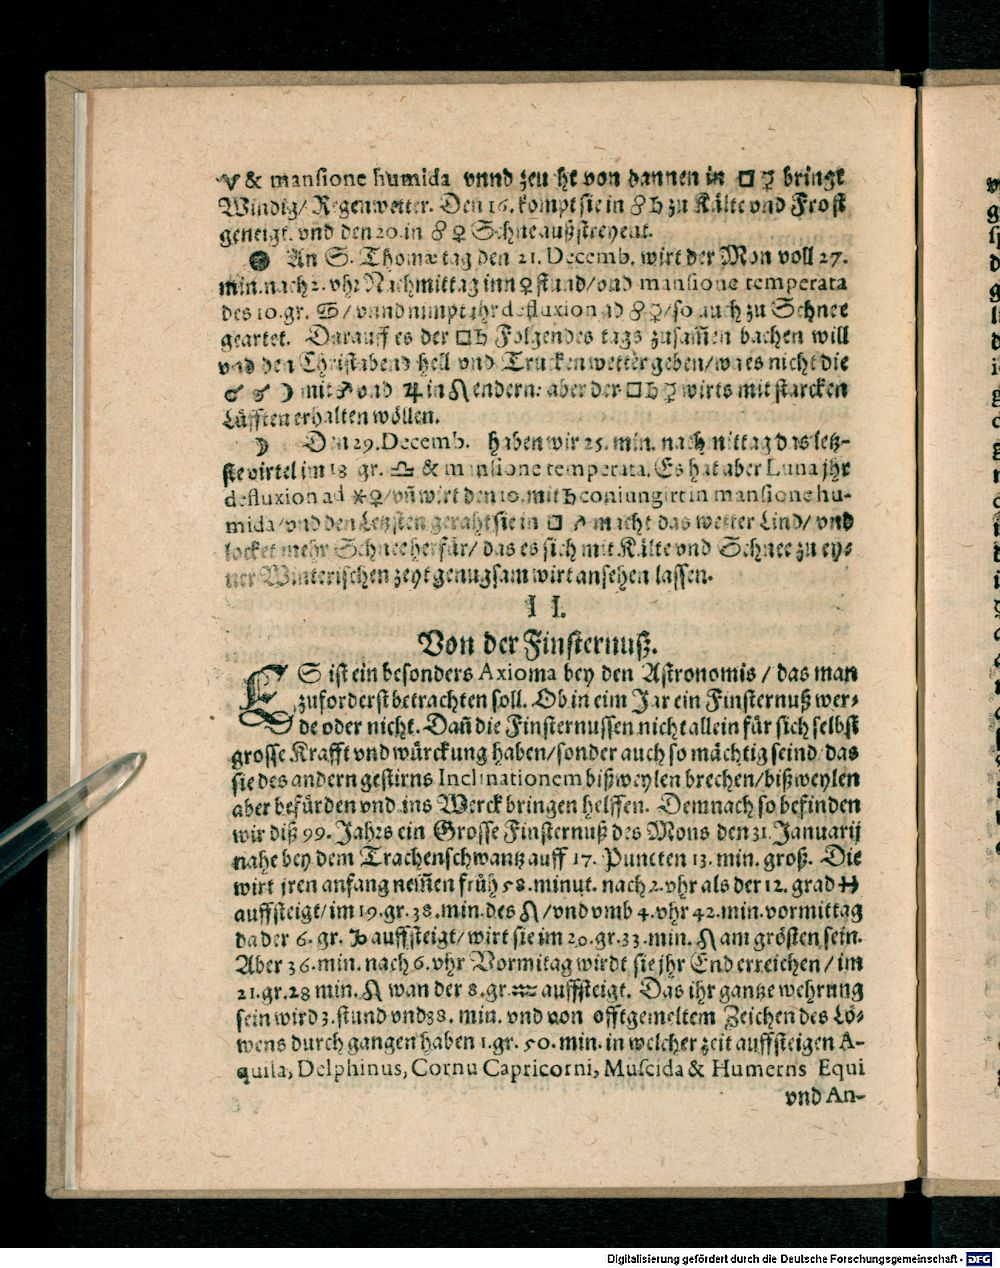 ♈ & mansione humida vnnd zeuhet von dannen in □ ☿ bringt
Windig/ Regenwetter. Den 16. kompt sie in ☍ ♄ zu Kälte vnd Frost
geneigt. vnd den 20. in ☍ ♀ Schne außstreyent.
An S. Thomæ tag den 21. Decemb. wirt der Mon voll 27.
min. nach 2. vhr Nachmittag inn ♀ stund/ vnd mansione temperata
des 10. gr. ♋/ vnnd nimpt ihr defluxion ad ☍ ☿/ so auch zu Schnee
geartet. Darauff es der □ ♄ Folgendes tags zusam̃en bachen will
vnd den Christabend hell vnd Trucken wetter geben/ wa es nicht die
☌ ☌ ☽ mit ♂ vnd ♃ in ♌ endern: aber der □ ♄ ☿ wirts mit starcken
Lüfften erhalten wöllen.
☽ Den 29. Decemb. haben wir 25. min. nach mittag das letz-
ste virtel im 18 gr. ♎ & mansione temperata. Es hat aber Luna jhr
defluxion ad ⚹ ♀/ vñ wirt den 10. mit ♄ coniungirt in mansione hu-
mida/ vnd den Letzsten geraht sie in □ ♂ macht das wetter Lind/ vnd
locket mehr Schnee herfür/ das es sich mit Kälte vnd Schnee zu ey-
ner Winterischen zeyt genugsam wirt ansehen lassen.
II.
Von der Finsternuß.
ES ist ein besonders Axioma bey den Astronomis / das man
zuforderst betrachten soll. Ob in eim Jar ein Finsternuß wer-
de oder nicht. Dañ die Finsternussen nicht allein für sich selbst
grosse Krafft vnd würckung haben/ sonder auch so mächtig seind das
sie des andern gestirns Inclinationem bißweylen brechen/ bißweylen
aber befürden vnd ins Werck bringen helffen. Demnach so befinden
wir diß 99. Jahrs ein Grosse Finsternuß des Mons den 31. Januarij
nahe bey dem Trachenschwantz auff 17. Puncten 13. min. groß. Die
wirt jren anfang nem̃en früh 58. minut. nach 2. vhr als der 12. grad ♓
auffsteigt/ im 19. gr. 38. min. des ♌/ vnd vmb 4. vhr 42. min. vormittag
da der 6. gr. ♑ auffsteigt/ wirt sie im 20. gr. 33. min. ♌ am grösten sein.
Aber 36. min. nach 6. vhr Vormitag wirdt sie jhr End erreichen / im
21. gr. 28 min. ♌ wan der 8. gr. ♒ auffsteigt. Das ihr gantze wehrung
sein wird 3. stund vnd 38. min. vnd von offtgemeltem Zeichen des Lö-
wens durch gangen haben 1. gr. 50. min. in welcher zeit auffsteigen A-
quila, Delphinus, Cornu Capricorni, Muscida & Humerns Equi
vnd An-
Digitalisierung gefördert durch die Deutsche Forschungsgemeinschaft - DFG